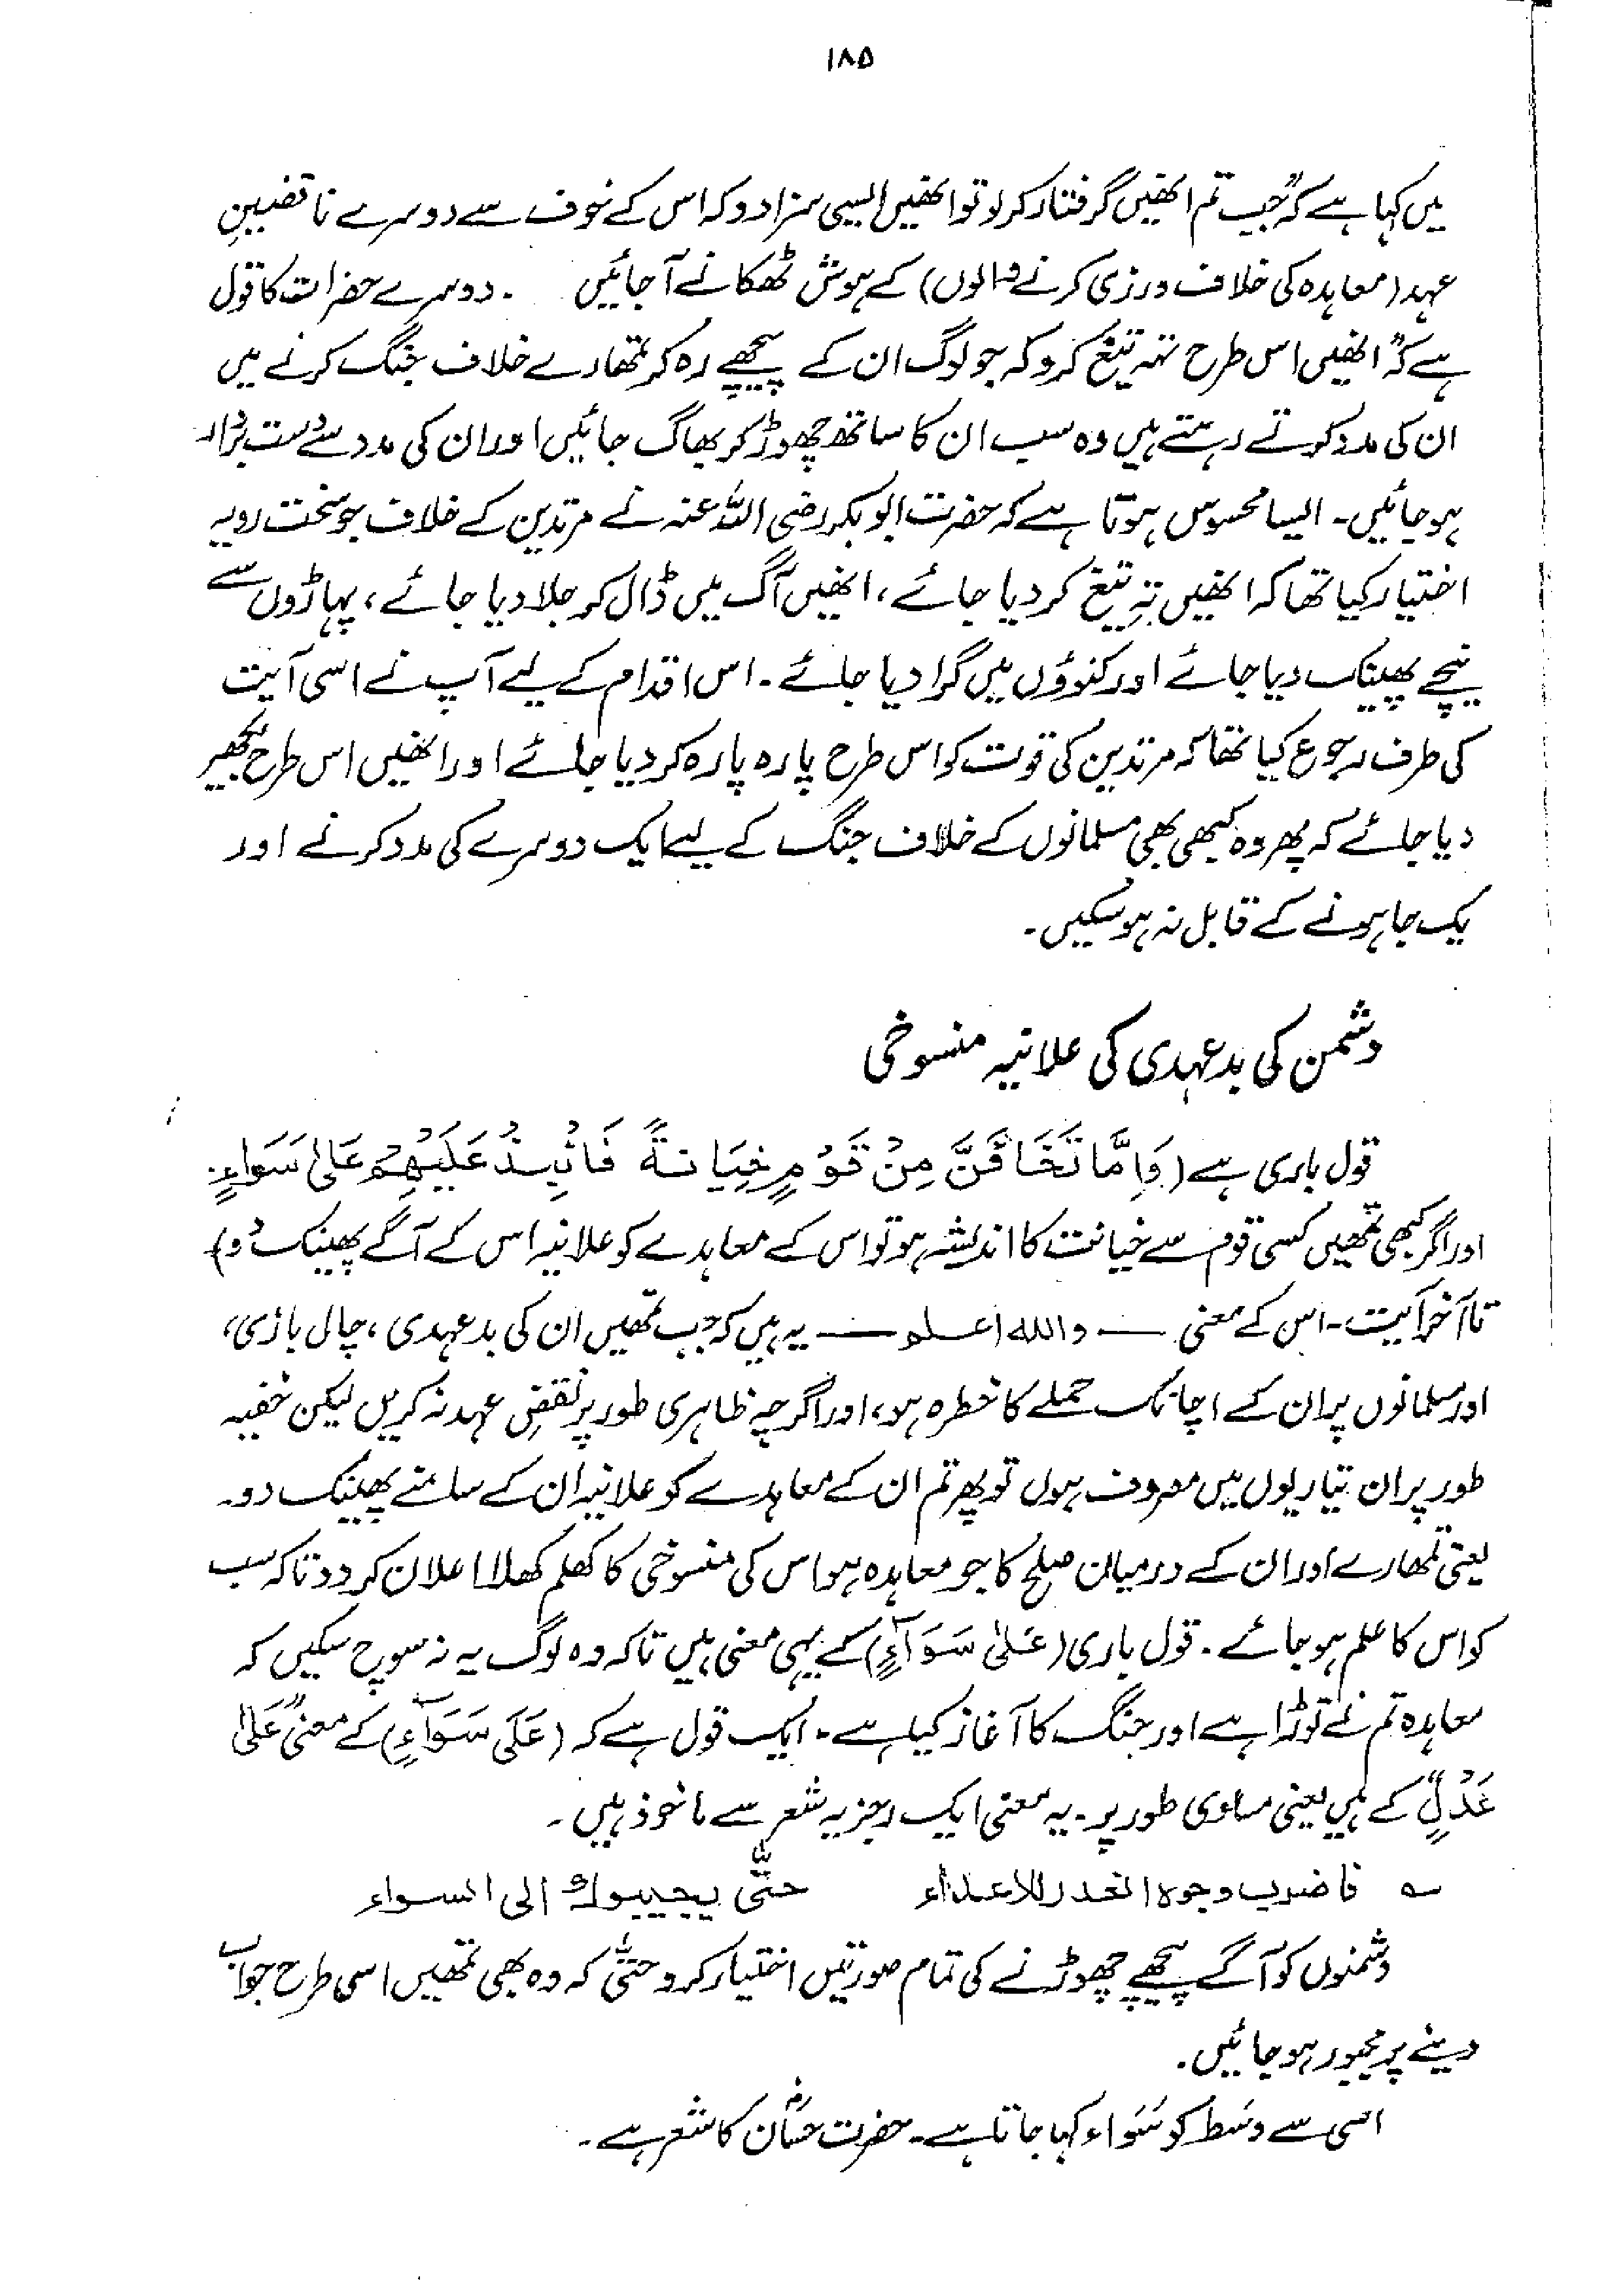 ۱۸۵
میں کہا ہے کہ "جب تم انھیں گرفتار کر لو تو انھیں ایسی سزا دو کہ اس کے خوف سے دوسرے ناقضینِ
عہد (معاہدہ کی خلاف ورزی کرنے والوں) کے ہوش ٹھکانے آ جائیں ۔ دوسرے حضرات کا قول
ہے کہ "انھیں اس طرح تہہ تیغ کرو کہ جو لوگ ان کے پیچھے رہ کر تمھارے خلاف جنگ کرنے میں
ان کی مدد کرتے رہتے ہیں وہ سب ان کا ساتھ چھوڑ کر بھاگ جائیں اور ان کی مدد سے دست بردار
ہو جائیں۔ ایسا محسوس ہوتا ہے کہ حضرت ابوبکر رضی اللہ عنہ نے مرتدین کے خلاف جو سخت رویہ
اختیار کیا تھا کہ انھیں تہِ تیغ کر دیا جائے، انھیں آگ میں ڈال کر جلا دیا جائے، پہاڑوں سے
نیچے پھینک دیا جائے اور کنوؤں میں گرا دیا جائے۔ اس اقدام کے لیے آپ نے اسی آیت
کی طرف رجوع کیا تھا کہ مرتدین کی قوت کو اس طرح پارہ پارہ کر دیا جائے اور انھیں اس طرح بکھیر
دیا جائے کہ پھر وہ کبھی بھی مسلمانوں کے خلاف جنگ کے لیے ایک دوسرے کی مدد کرنے اور
یک جا ہونے کے قابل نہ ہو سکیں۔
دشمن کی بدعہدی کی علانیہ منسوخی
قول باری ہے (وَاِمَّا تَخَافَنَّ مِنْ قَوْمٍ خِيَانَةً فَانْبِذْ عَلَيْهِمْ عَلٰى سَوَاءٍ۔
اور اگر کبھی تمھیں کسی قوم سے خیانت کا اندیشہ ہو تو اس کے معاہدے کو علانیہ اس کے آگے پھینک دو)
تا آخر آیت۔ اس کے معنی ــــ والله اعلم ــــ یہ ہیں کہ جب تمھیں ان کی بدعہدی، چال بازی،
اور مسلمانوں پر ان کے اچانک حملے کا خطرہ ہو، اور اگرچہ ظاہری طور پر نقضِ عہد نہ کریں لیکن خفیہ
طور پر ان تیاریوں میں مصروف ہوں تو پھر تم ان کے معاہدے کو علانیہ ان کے سامنے پھینک دو۔
یعنی تمھارے اور ان کے درمیان صلح کا جو معاہدہ ہو اس کی منسوخی کا کھلم کھلا اعلان کر دو تاکہ سب
کو اس کا علم ہو جائے۔ قول باری (عَلىٰ سَوَآءٍ) کے یہی معنی ہیں تاکہ وہ لوگ یہ نہ سوچ سکیں کہ
معاہدہ تم نے توڑا ہے اور جنگ کا آغاز کیا ہے۔ ایک قول ہے کہ (عَلَى سَوَآءٍ) کے معنی "عَلىٰ
عَدْلٍ" کے ہیں یعنی مساوی طور پر۔ یہ معنی ایک رجزیہ شعر سے ماخوذ ہیں۔
؎ فاضرب وجوه الغدر للاعداء حتّٰى يجيبوك الى السواء
دشمنوں کو آگے پیچھے چھوڑنے کی تمام صورتیں اختیار کرو حتیٰ کہ وہ بھی تمھیں اسی طرح جواب
دینے پر مجبور ہو جائیں۔
اسی سے وسَط کو سَوَاء کہا جاتا ہے۔ حضرت حسّانؓ کا شعر ہے۔